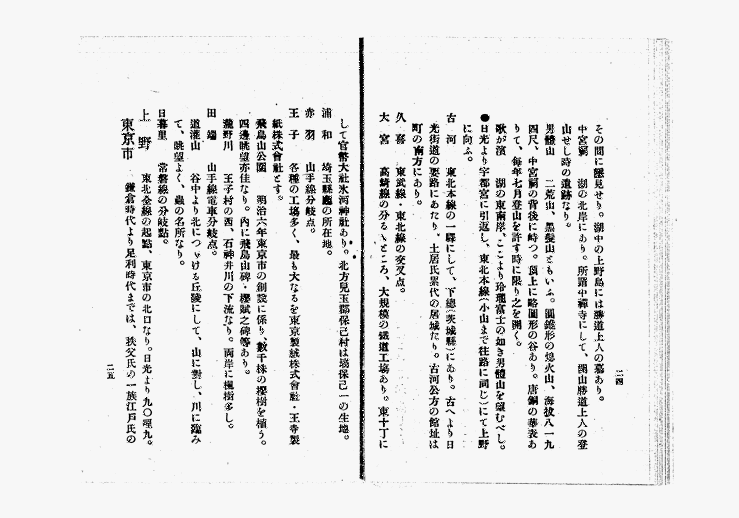 その間に隱見せり。湖中の上野島には勝道上人の墓あり。
中宮祠　湖の北岸にあり。所謂中禪寺にして、開山勝道上人の登
山せし時の遺跡なり。
男體山　二荒山、黑髮山ともいふ。圓錐形の熄火山、海拔八一九
四尺、中宮祠の背後に峙つ。頂上に略圓形の谷あり。唐銅の華表あ
りて、每年七月登山を許す時に限り之を開く。
歌が濱　湖の東南岸、ここより玲瓏富士の如き男體山を望むべし。
●日光より宇都宮に引返し、東北本線(小山まで往路に同じ)にて上野
に向ふ。
古河　東北本線の一驛にして、下總(茨城縣)にあり。古へより日
光街道の要路にあたり、土居氏累代の居城たり。古河公方の館址は
町の南方にあり。
久喜　東武線・東北線の交叉點。
大宮　高崎線の分るゝところ、大規模の鐵道工場あり。東十丁に
二四
して官幣大社氷河神社あり。北方兒玉郡保己村は塙保己一の生地。
浦和　埼玉縣廳の所在地。
赤羽　山手線分岐點。
王子　各種の工場多く、最も大なるを東京製絨株式會社・王寺製
紙株式會社とす。
飛鳥山公園　明治六年東京市の創設に係り、數千株の櫻樹を植う。
四邊眺望亦佳なり。內に飛鳥山碑・櫻賦之碑等あり。
瀧野川　王子村の西、石神井川の下流なり。兩岸に楓樹多し。
田端　山手線電車分岐點。
道灌山　谷中より北につゞける丘陵にして、山に對し、川に臨み
て、眺望よく、蟲の名所なり。
日暮里　常磐線の分岐點。
上野　東北全線の起點、東京市の北口なり。日光より九〇哩九。
東京市　鎌倉時代より足利時代までは、秩父氏の一族江戸氏の
二五